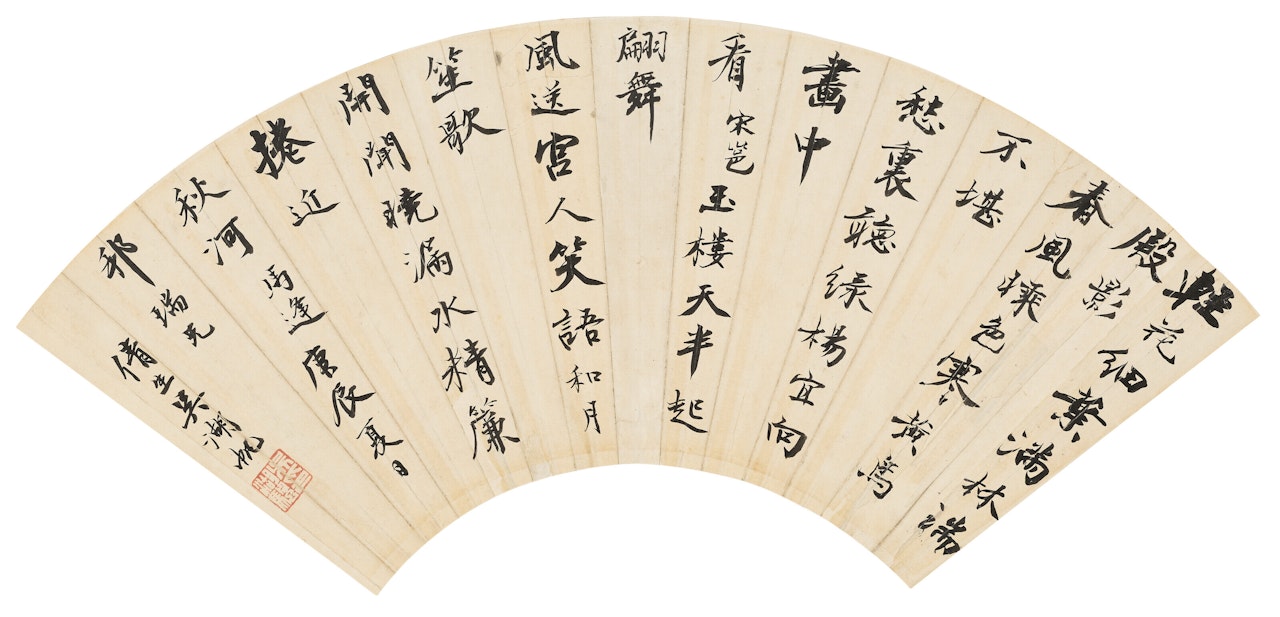 輕花細葉滿林端
殿影
春風曉色寒黃鳥
不堪
愁裏聽綠楊宜向
畫中
看 宋邕 玉樓天半起
翩舞
風送宮人笑語和月
笙歌
開聞曉漏水精簾
捲近
秋河 馬逢 庚辰夏日
邦瑞兄
倩生吳湖帆